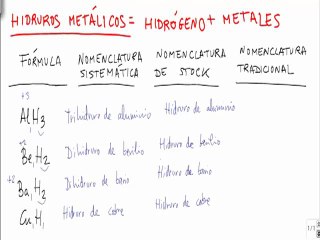 HIDRUROS METÁLICOS = HIDRÓGENO + METALES
FÓRMULA NOMENCLATURA SISTEMÁTICA NOMENCLATURA DE STOCK NOMENCLATURA TRADICIONAL
+3
AlH3 Trihidruro de aluminio Hidruro de aluminio
+2
Be1H2 Dihidruro de berilio Hidruro de berilio
+2
Ba1H2 Dihidruro de bario Hidruro de bario
Cu1H1 Hidruro de cobre Hidruro de cobre
1/1